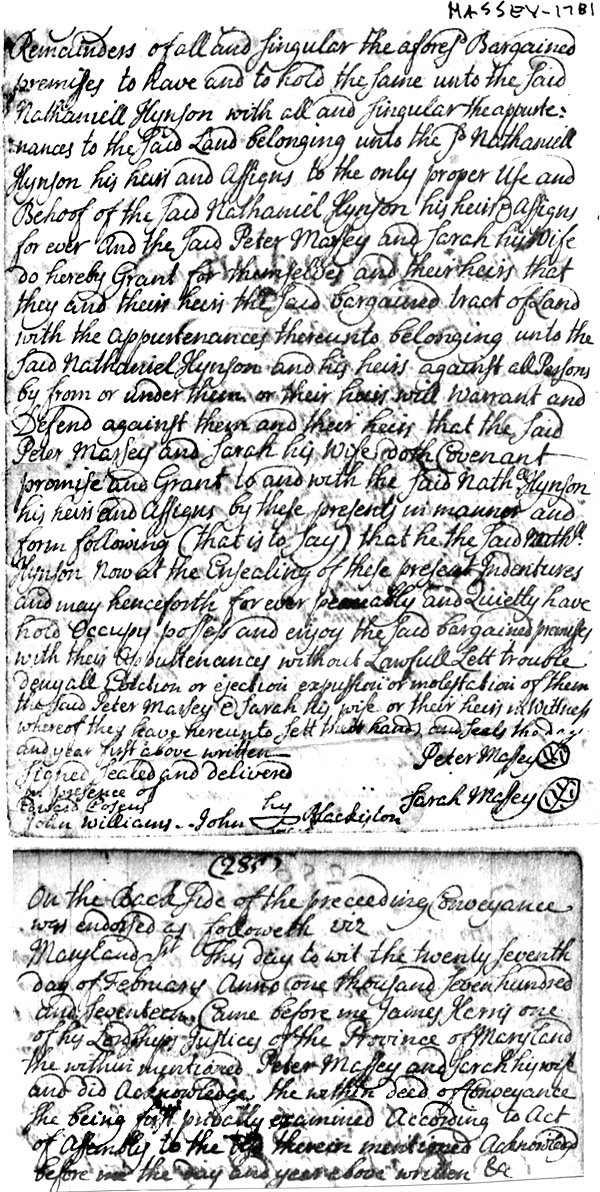 MASSEY-1781
Remainders of all and singular the afores.d Bargained
premisses to have and to hold the same unto the said
Nathaniell Hynson with all and singular the appurte:
nances to the said Land belonging unto the s.d Nathaniell
Hynson his heirs and Assigns to the only proper Use and
Behoof of the said Nathaniel Hynson his heirs & Assigns
for ever And the said Peter Massey and Sarah his Wife
do hereby Grant for themselves and their heirs that
they and their heirs the said bargained tract of Land
with the appurtenances thereunto belonging unto the
said Nathaniel Hynson and his heirs against all Persons
by from or under them or their heirs will warrant and
Defend against them and their heirs that the said
Peter Massey and Sarah his Wife doth Covenant
promise and Grant to and with the said Nath.ll Hynson
his heirs and Assigns by these presents in manner and
form following (that is to say) that he the said Nath.ll
Hynson Now at the Ensealing of these present Indentures
and may henceforth for ever peaceably and Quietly have
hold Occupy possess and enjoy the said bargained premisses
with their Appurtenances without Lawfull Lett trouble
denyall Eviction or ejection expulsion or molestation of them
the said Peter Massey & Sarah his wife or their heirs in Witness
whereof they have hereunto sett their hands and seals the day
and year first above written Peter Massey
Signed Sealed and delivered
in presence of Sarah Massey
Edward Cosens
John Williams - John his Blackiston
(285)
On the Back Side of the preceeding Conveyance
was endorsed as followeth viz
Maryland Ss This day to wit the twenty seventh
day of February Anno one thousand seven hundred
and seventeen Came before me James Harris one
of his Lordships Justices of the Province of Maryland
the within mentioned Peter Massey and Sarah his wife
and did Acknowledge the within deed of Conveyance
she being first privatly examined According to Act
of Assembly to the therein mentioned Acknowledgd
before me the day and year above written &c